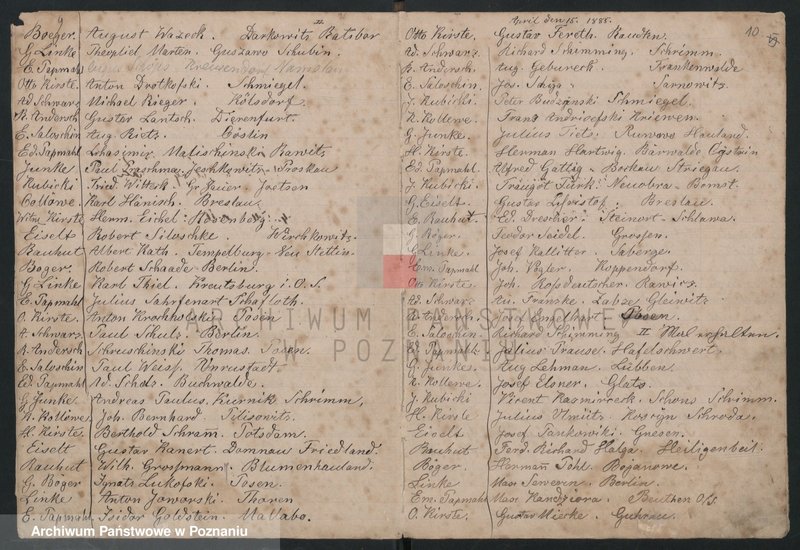 Boeger. August Wozeck. Darkowitz Ratibor
G Linke Theophiel Marten. Gustawo Schubin.
E. Tapmahl
Otto Kirste. Anton Drotkofski. Schmiegel.
Ad Schwarz Michael Rieger. Kölsdorf.
R. Andersch Gustav Lantsch. Dierenfurt.
E. Saloschin Aug. Rietz. Cöslin
Ed. Tapmahl Malischinski Rawitz
Junke Paul Jeshkowitz Proskau
Kubicki Fried. Wittack Gr Jauer Joetsen
Collowe. Karl Hänisch. Breslau.
Wilm Kirste Herm. Eichel. Rosenberg.
Eiselt Robert Siloschke Wirchkowitz.
Rauhut Albert Kath. Tempelburg. Neu Stettin
Boger. Robert Schaade. Berlin.
G. Linke Karl Thiel. Kreutzburg i. O. S.
E. Tapmahl Julius Sahrfenart. Schafloth.
O. Kirste. Anton Krocholski Posen
A. Schwarz Paul Schulz. Berlin.
R. Andersch Schruschinski Thomas. Posen.
E. Saloschin Paul Weiss. Unrustadt
Ed. Tapmahl Ad. Scholz. Buchwalde.
G. Junke Andreas Paulus. Kiernik Schrimm.
K. Kollowe Joh. Bernhard. Silisowitz
H. Kirste Berthold Schram. Potsdam.
Eiselt Gustav Kanert. Domnau Friedland.
Rauhut Wilh. Grossmann. Blumenhauland.
G. Boger Ignatz Lukofski. Posen.
Linke Anton Jaworski Thoren
E. Tapmahl Isidor Goldstein. Wallabo.
April den 15. 1885.
10
Otto Kirste. Gustav Fereth. Raudten
Ad. Schwarz Richard Schimming. Schrimm.
R. Andersch. Aug. Gebureck. Frankenwalde
E. Saloschin Jos. Tarnowitz.
J. Kubicki Peter Budzynski Schmiegel.
K. Kollewe. Franz Andricefski Kriewen.
G. Junke. Julius Tietz. Runowo Hauland.
H. Kirste. Herman Hartwig. Bärwalde Cöstein
Ed. Tapmahl Alfred Gattig. Bockau Striegau.
J. Kubicki Traugot Türk. Neuobra. Bomst.
G. Eiselt Gustav Breslau.
E. Rauhut Ed. Drescher. Steinort. Schlawa.
G. Böger. Teodor Seidel. Grossen.
G Linke. Josef Kallitter. Saberze.
Em. Tapmahl Joh. Vogler. Koppendorf.
Otto Kirste. Joh. Rossdeutscher Rawicz
Ad. Schwarz. Au. Franske. Zabze Gleiwitz
R. Andersch Josef Engelhart Posen
E. Saloschin Richard Schimming II Mal erhalten.
Ed. Tapmahl Julius Trause. Hafelschwert.
G. Junke. Aug Lehman. Lübben.
K. Kollewe. Josef Elsner. Glatz.
J. Kubicki Virent Kasmirreck. Schons Schrimm.
H. Kirste Julius Ulmütz. Kosszyn Schroda.
Eiselt Josef Tankowiki. Gnesen.
Rauhut Ferd. Richard Halga. Heiligenbeil.
Böger. Herman Pohl. Boganowe.
Linke Max Berlin.
Em. Tapmahl Max Kandziora. Beuthen O/S.
O. Kirste. Gustav Mierke. Guhrau.
ARCHIWUM PAŃSTWOWE
W POZNANIU
Archiwum Państwowe w Poznaniu